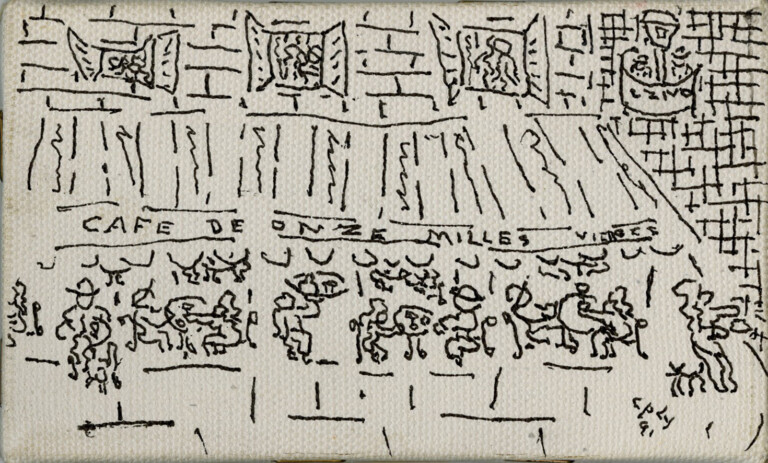 CAFE DE ONZE MILLES VIERGES
cply